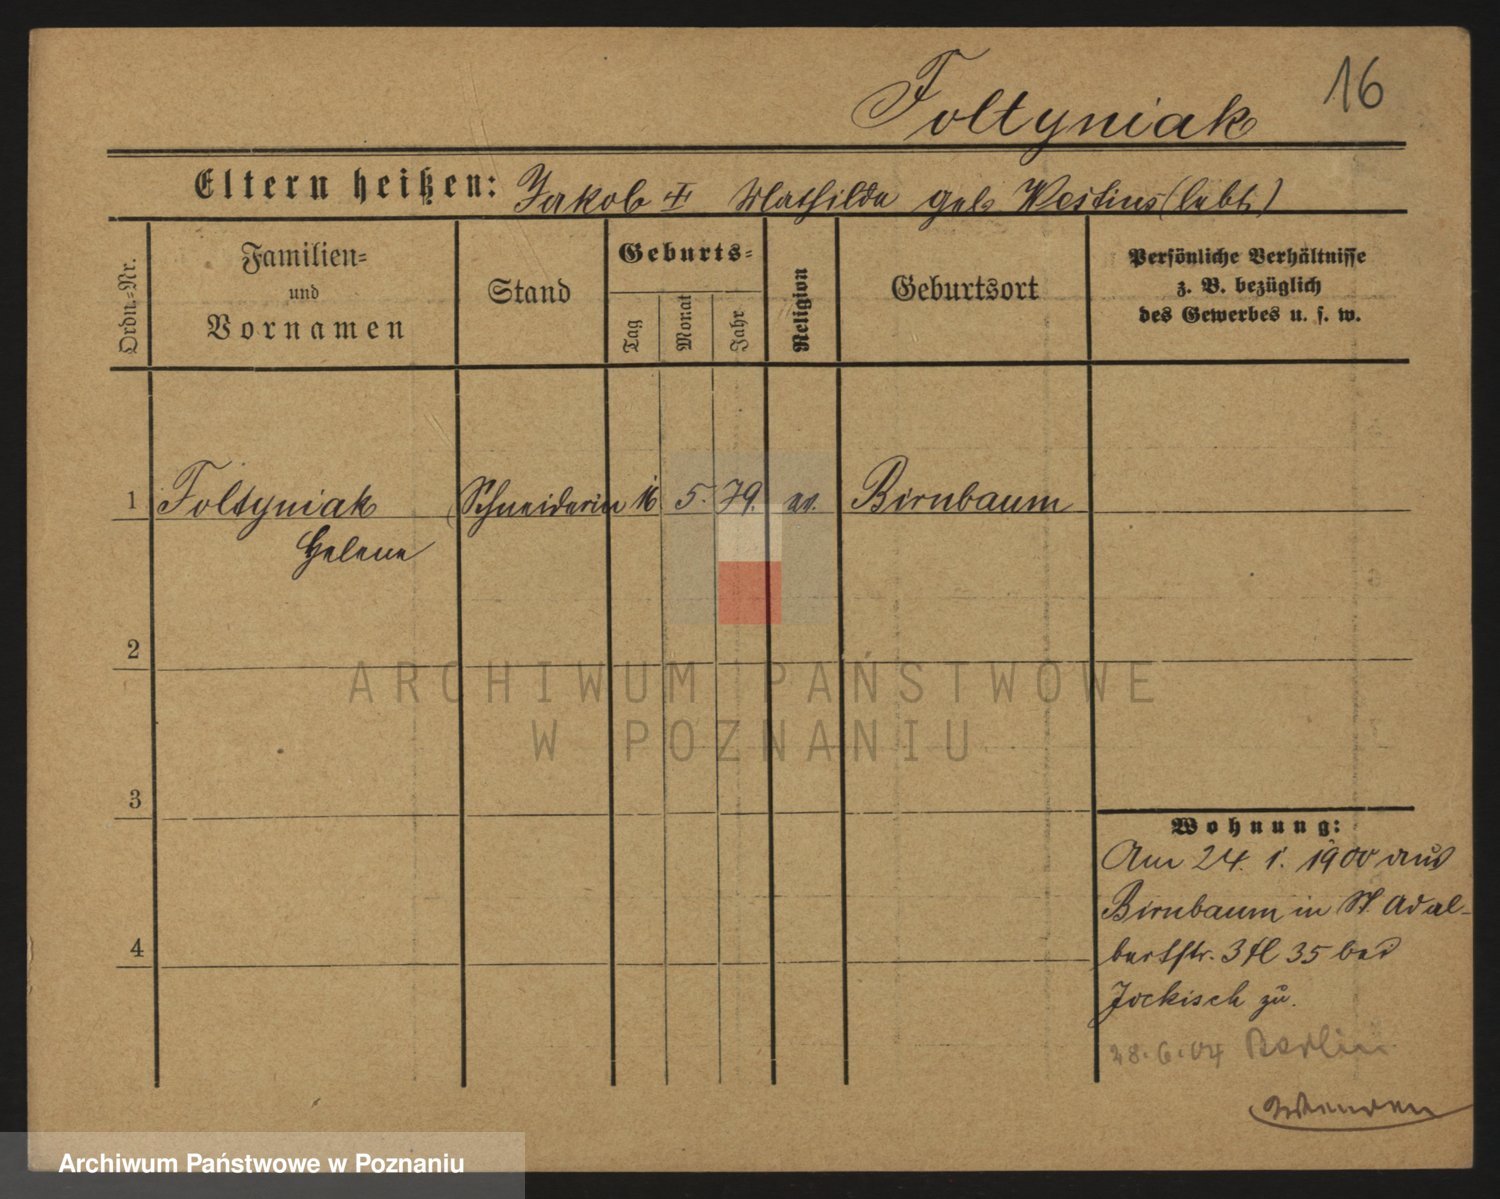 16
Foltyniak
Eltern heißen: Jakob † Mathilde geb (lebt.)
Ordn.=Nr.
Familien=
und
Vornamen
Stand
Geburts=
Tag
Monat
Jahr
Religion
Geburtsort
Persönliche Verhältnisse
z. B. bezüglich
des Gewerbes u. s. w.
1 Foltyniak Schneiderin 16 5. 79. ev. Birnbaum
Helene
2
ARCHIWUM PAŃSTWOWE
W POZNANIU
3
Wohnung:
Am 24. 1. 1900 aus
Birnbaum in St. Adal-
bertstr. 35 bei
4
Jockisch zu.
28.6.04 Berlin
Wenden
Archiwum Państwowe w Poznaniu